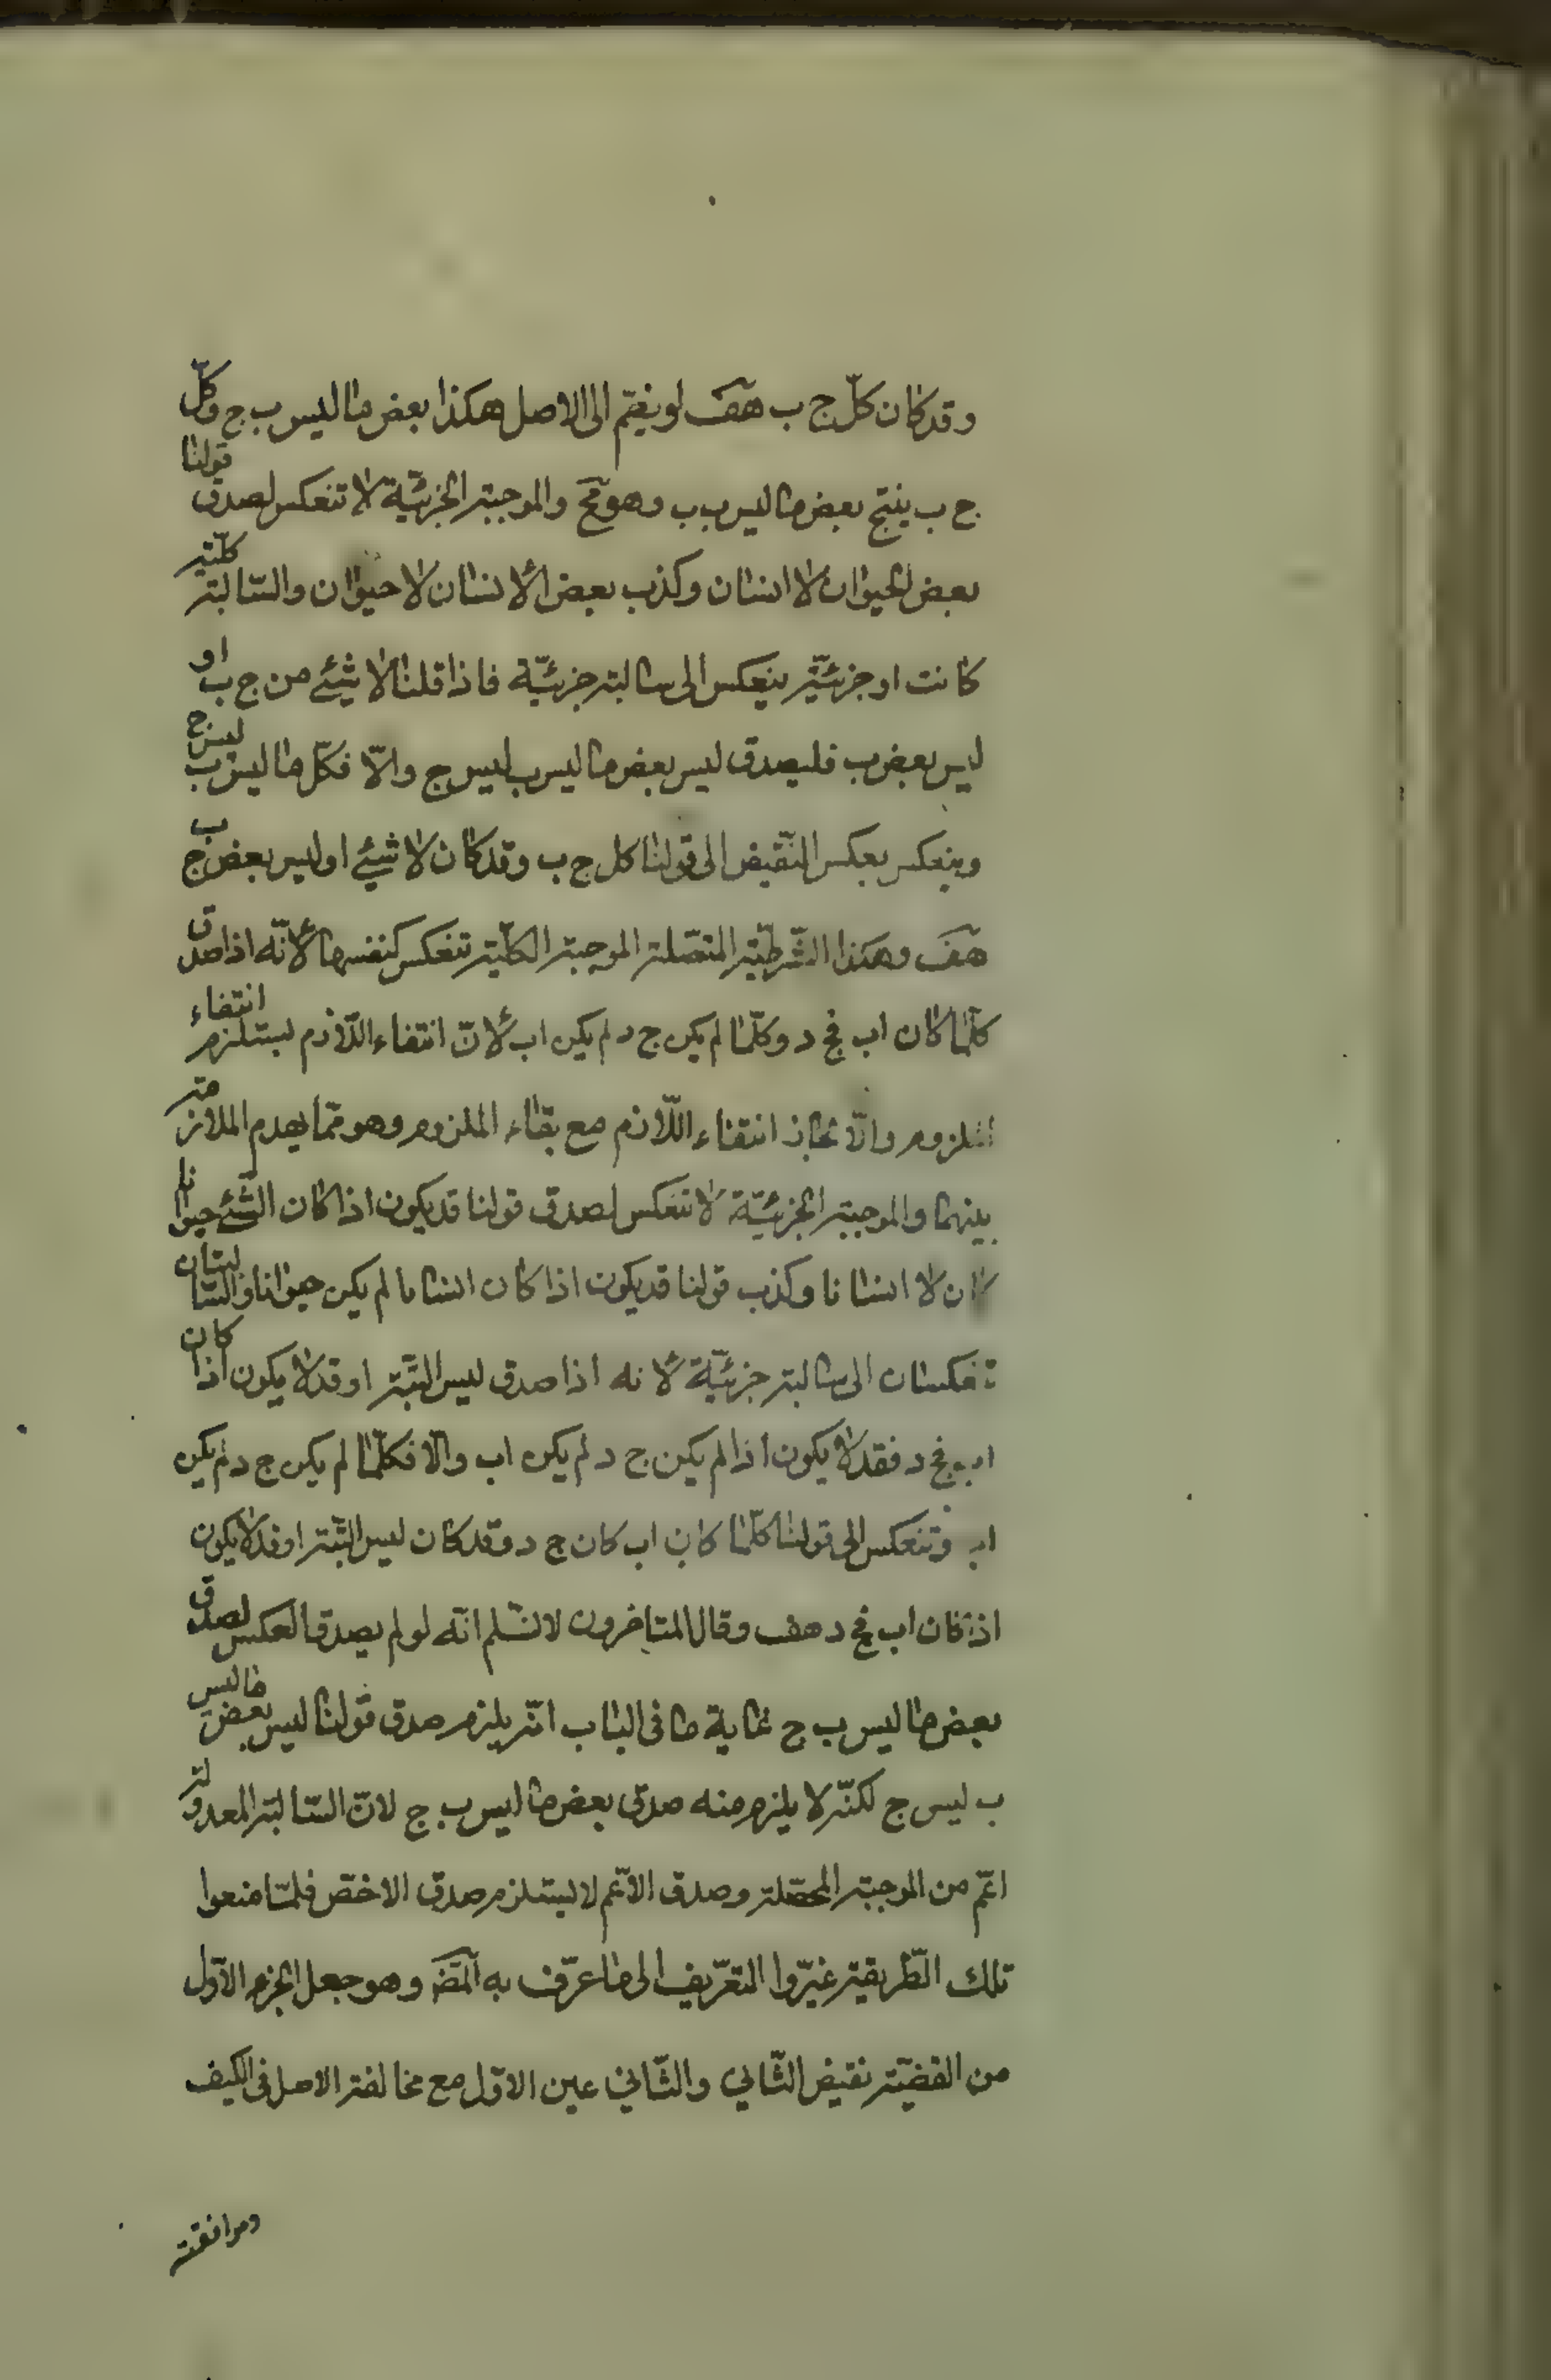 وقد كان كلّ ج ب هف او يضمّ الى الاصل هكذا بعض ما ليس ب ج وكلّ
ج ب ينتج بعض ما ليس ب ب وهو مح والموجبة الجزئيّة لا تنعكس لصدق قولنا
بعض الحيوان لا انسان وكذب بعض الانسان لا حيوان والسّالبة كلّيّة
كانت او جزئيّة ينعكس الى سالبة جزئيّة فاذا قلنا لا شئ من ج ب او
ليس بعض ب فليصدق ليس بعض ما ليس ب ليس ج والّا فكلّ ما ليس ب ليس ج
وينعكس بعكس النّقيض الى قولنا كل ج ب وقد كان لا شئ او ليس بعض ج ب
هف وهكذا الشّرطيّة المتّصلة الموجبة الكلّيّة تنعكس كنفسها لأنّه اذا صدق
كلّما كان اب فج د وكلّما لم يكن ج د لم يكن اب لأنّ انتفاء اللّازم يستلزم انتفاء
الملزوم والّا لجاز انتفاء اللّازم مع بقاء الملزوم وهو ممّا يهدم الملازمة
بينهما والموجبة الجزئيّة لا تنعكس لصدق قولنا قد يكون اذا كان الشّئ حيوانا
كان لا انسانا وكذب قولنا قد يكون اذا كان انسانا لم يكن حيوانا والسّالبتان
تنعكسان الى سالبة جزئيّة لأنه اذا صدق ليس البتّة او قد لا يكون اذا كان
اب فج د فقد لا يكون اذا لم يكن ج د لم يكن اب والّا فكلّما لم يكن ج د لم يكن
اب وتنعكس الى قولنا كلّما كان اب كان ج د وقد كان ليس البتّة او قد لا يكون
اذا كان اب فج د هف وقال المتاخرون لا نسّلم انّه لو لم يصدق العكس لصدق
بعض ما ليس ب ج غاية ما فى الباب انّه يلزم صدق قولنا ليس بعض ما ليس
ب ليس ج لكنّه لا يلزم منه صدق بعض ما ليس ب ج لانّ السّالبة المعدولة
اعمّ من الموجبة المحصّلة وصدق الاعّم لا يستلزم صدق الاخصّ فلمّا منعوا
تلك الطّريقة غيّروا التعّريف الى ما عرّف به المص وهو جعل الجزء الاوّل
من القضيّة نقيض الثّاني والثّاني عين الاوّل مع مخالفة الاصل فى الكيف
وموافقته